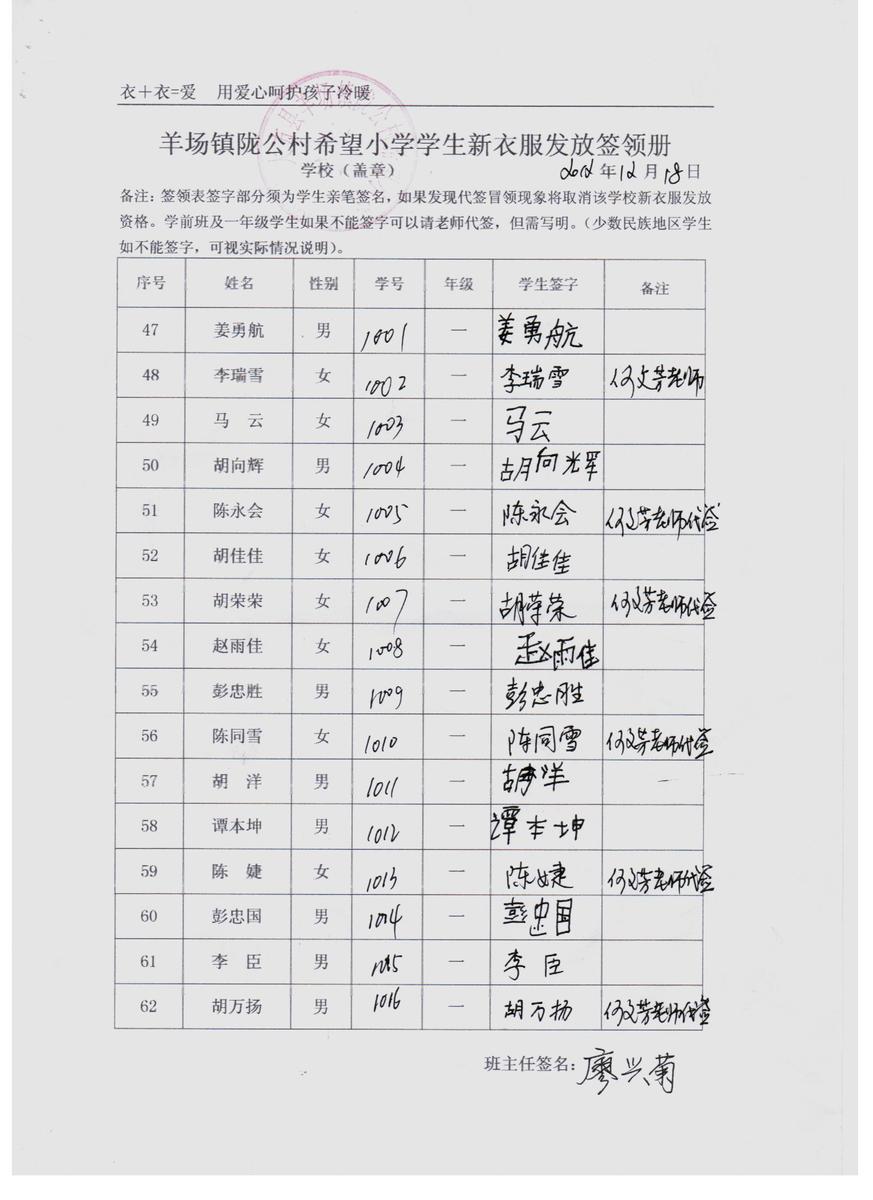 衣+衣=爱 用爱心呵护孩子冷暖
羊场镇陇公村希望小学学生新衣服发放签领册
学校(盖章) 2012年12月18日
备注:签领表签字部分须为学生亲笔签名,如果发现代签冒领现象将取消该学校新衣服发放
资格。学前班及一年级学生如果不能签字可以请老师代签,但需写明。(少数民族地区学生
如不能签字,可视实际情况说明)。
序号 姓名 性别 学号 年级 学生签字 备注
47 姜勇航 男 1001 一 姜勇航
48 李瑞雪 女 1002 一 李瑞雪 何文芳老师
49 马 云 女 1003 一 马云
50 胡向辉 男 1004 一 胡向辉
51 陈永会 女 1005 一 陈永会 何文芳老师代签
52 胡佳佳 女 1006 一 胡佳佳
53 胡荣荣 女 1007 一 胡荣荣 何文芳老师代签
54 赵雨佳 女 1008 一 赵雨佳
55 彭忠胜 男 1009 一 彭忠胜
56 陈同雪 女 1010 一 陈同雪 何文芳老师代签
57 胡 洋 男 1011 一 胡洋
58 谭本坤 男 1012 一 谭本坤
59 陈 婕 女 1013 一 陈婕 何文芳老师代签
60 彭忠国 男 1014 一 彭忠国
61 李 臣 男 1015 一 李臣
62 胡万扬 男 1016 一 胡万扬 何文芳老师代签
班主任签名:廖兴菊